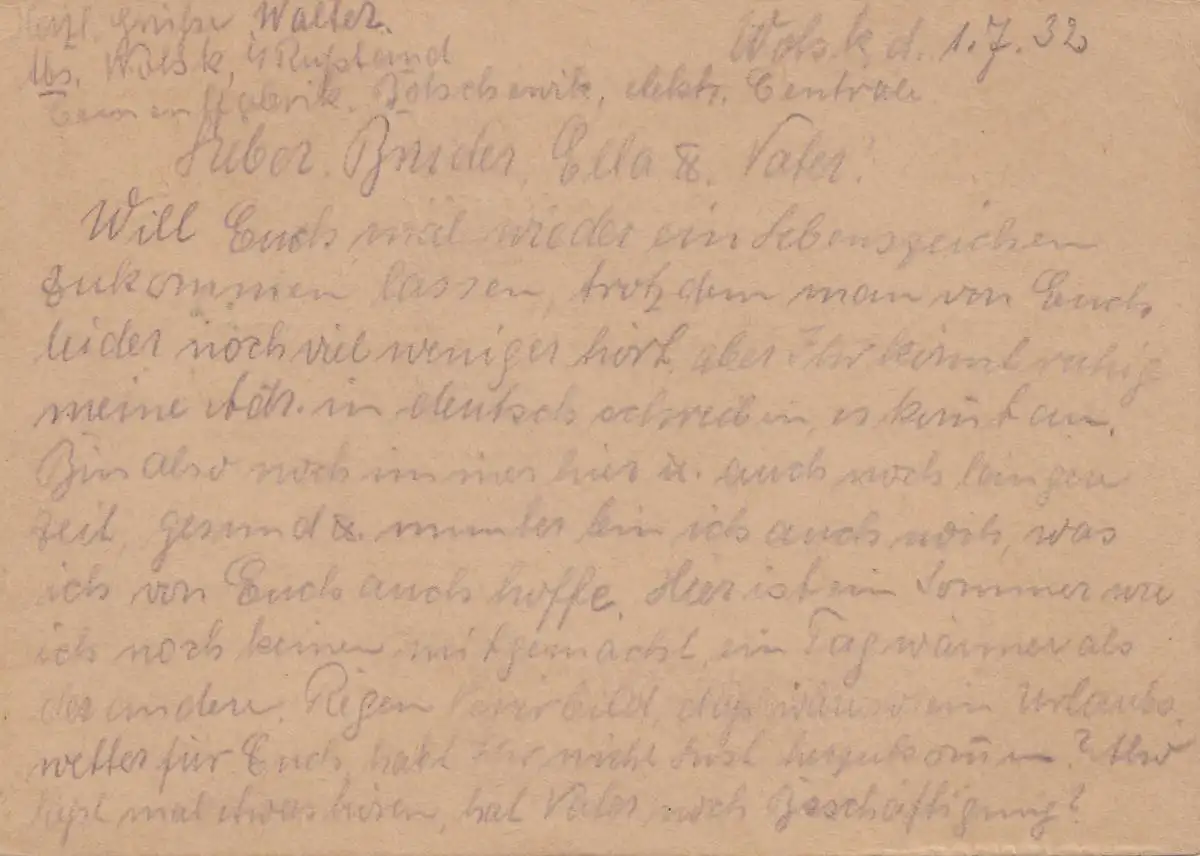 Herzl. Grüße Walter.
Abs. Wolsk, Rußland
Wolsk, d. 1.7.32
Cementfabrik. Bolschewik, elektr. Centrale
Lieber Bruder, Ella u. Vater!
Will Euch mal wieder ein Lebenszeichen
zukommen lassen, trotzdem man von Euch
leider noch viel weniger hört, aber Ihr könnt ruhig
meine Adr. in deutsch schreiben, es kom̅t an.
Bin also noch immer hier u. auch noch lange
Zeit, gesund u. munter bin ich auch noch, was
ich von Euch auch hoffe. Hier ist ein Sommer wie
ich noch keinen mitgemacht, ein Tag wärmer als
der andere. Regen, das wäre so ein Urlaubs-
wetter für Euch, habt Ihr nicht Lust herzukom̅en? Also
laßt mal etwas hören, hat Vater noch Beschäftigung?